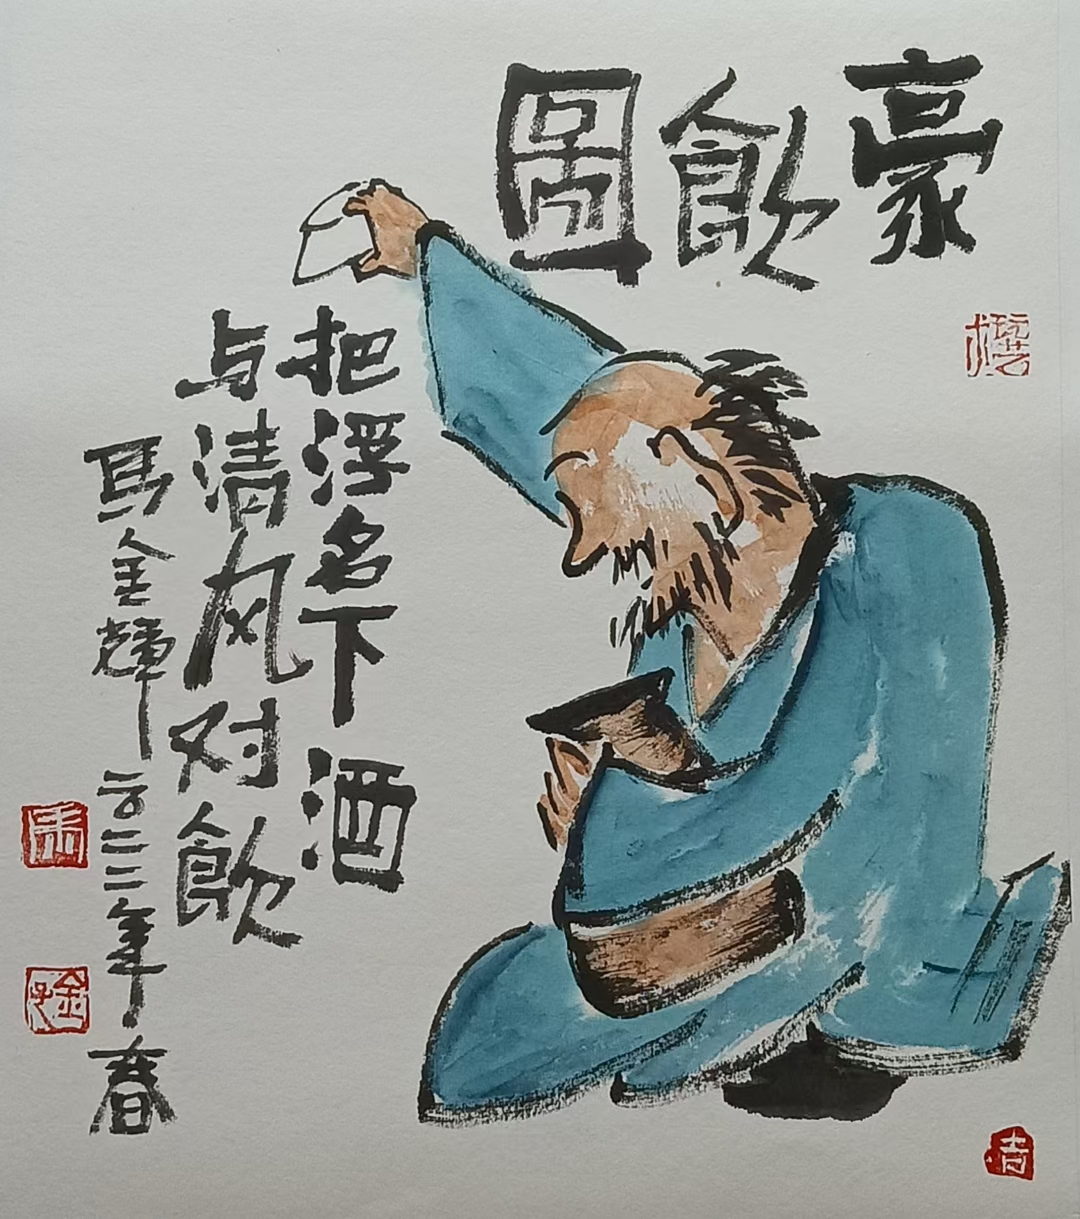 豪飲圖
把浮名下酒
与清风对飲
馬金輝二〇二二年春